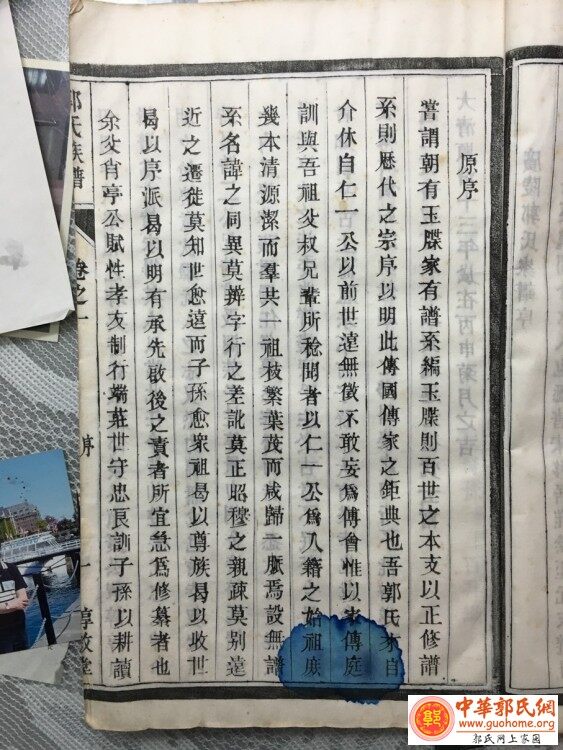 原序
嘗謂朝有玉牒家有譜系編玉牒則百世之本支以正修譜
系則歷代之宗序以明此傳國傳家之鉅典也吾郭氏來自
介休自仁一公以前世遠無徵不敢妄爲傅會惟以素傳庭
訓與吾祖父叔兄輩所稔聞者以仁一公爲入籍之始祖庶
幾本清源潔而羣共一祖枝繁葉茂而咸歸一脈焉設無譜
系名諱之同異莫辨字行之差訛莫正昭穆之親疎莫別遠
近之遷徙莫知世愈遠而子孫愈衆祖曷以尊族曷以收世
曷以序派曷以明有承先啟後之責者所宜急爲修纂者也
余父肖亭公賦性孝友制行端莊世守忠良訓子孫以耕讀
郭氏族譜 卷之一 序 一 堂
中華郭氏網
www.guohome.org
郭氏网上家园